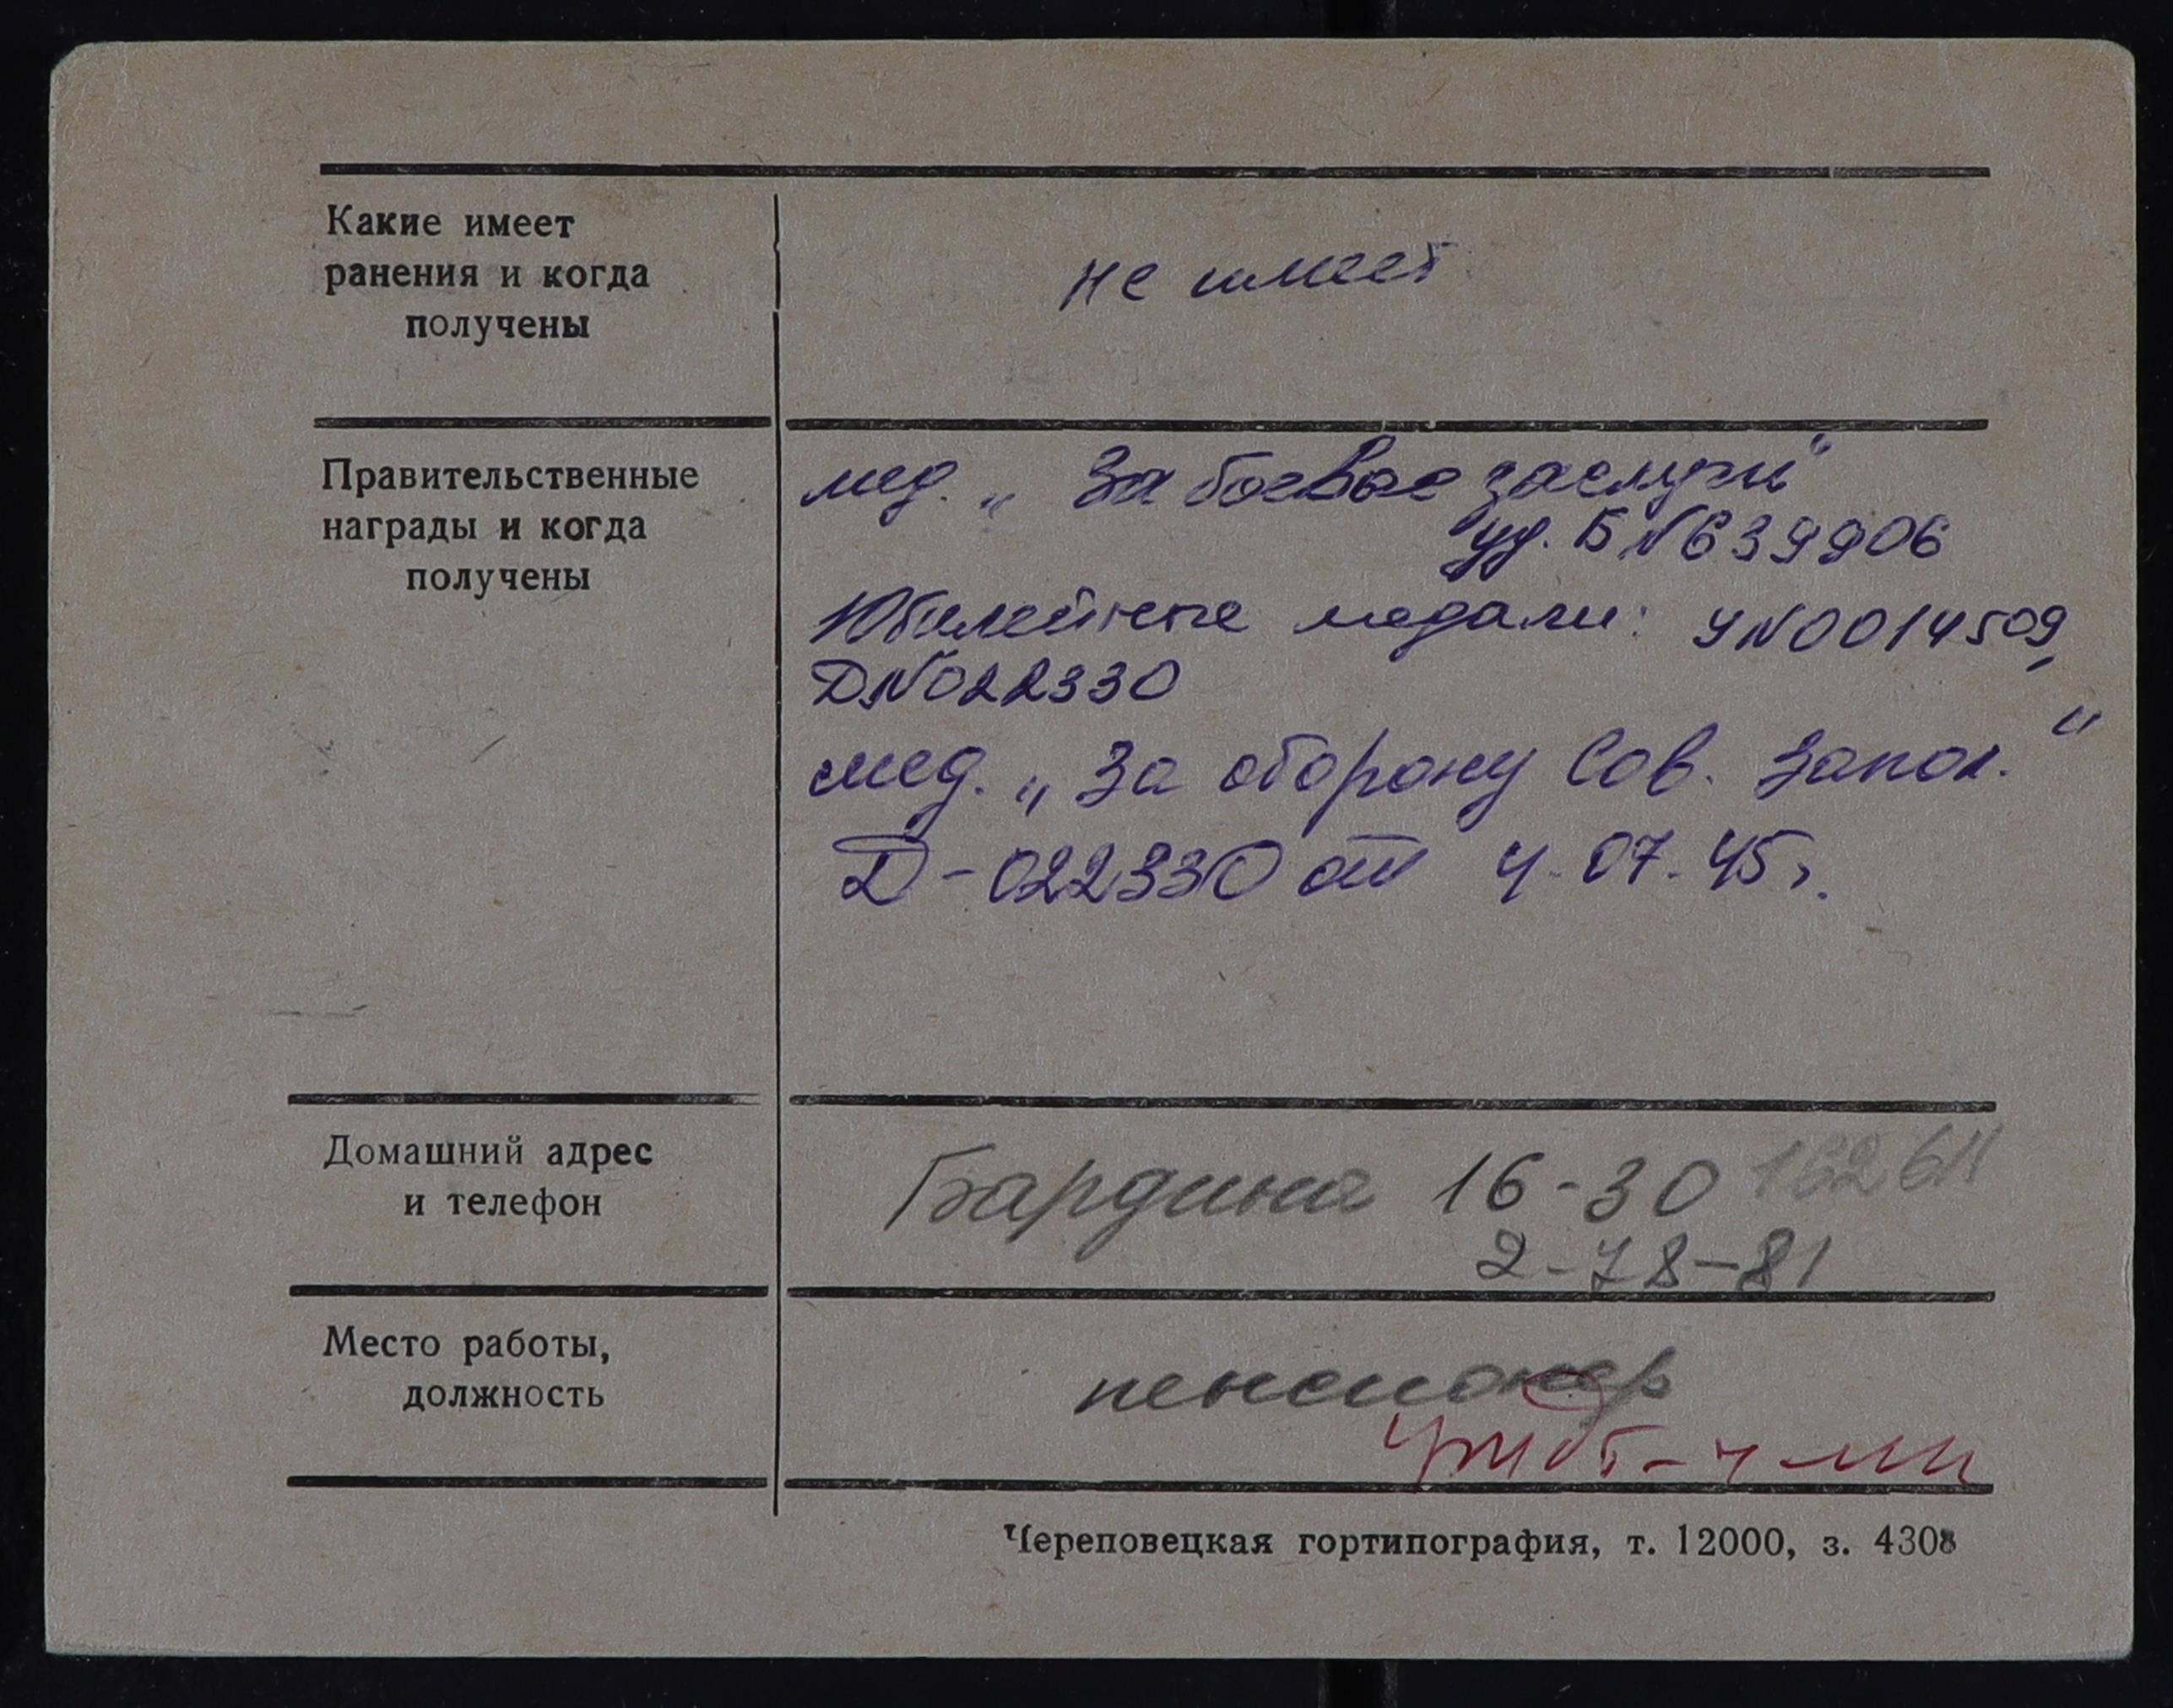 Какие имеет
ранения и когда
получены
не имеет
Правительственные
награды и когда
получены
мед. „За боевые заслуги"
уд. Б №639906
Юбилейные медали: У№0014509,
Д№022330
мед. „За оборону Сов. Запол."
Д-022330 от 4.07.45г.
Домашний адрес
и телефон
Бардина 16-30 162611
2-78-81
Место работы,
должность
пенсионер
Череповецкая гортипография, т. 12000, з. 4308